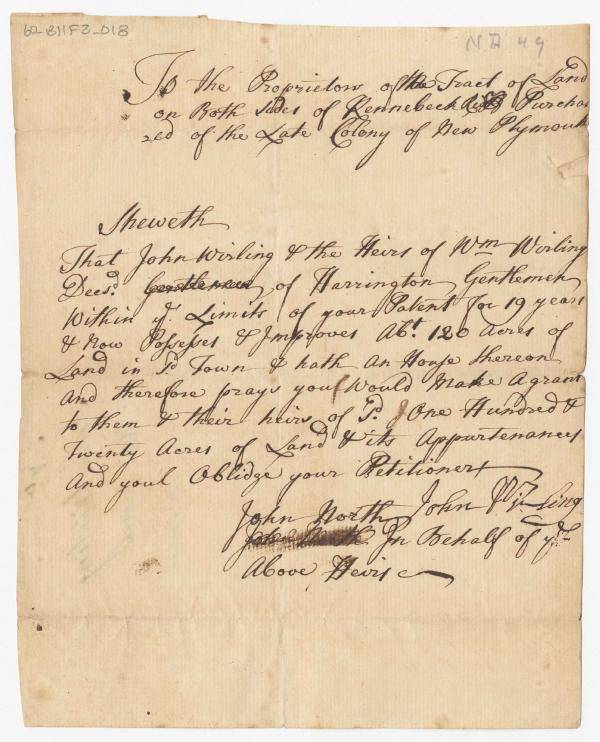 62-B11F3-018
NB 49
To the Proprietors of the Tract of Land
on Both Sides of Kennebeck Purcha
sed of the Late Colony of New Plymouth
Sheweth
That John Wirling & the Heirs of Wm Wirling
Decsd Gentleman of Harrington Gentlemen
Within ye Limits of your Patent for 19 years
& Now Posseses & Improves Abt 120 Acres of
Land in sd Town & hath An House thereon
And therefore prays you Would Make A grant
to them & their heirs of sd One Hundred &
Twenty Acres of Land & its Appurtenances
And youl Oblidge your Petitioners
John North John Wirling
In Behalf of ye
Above Heirs